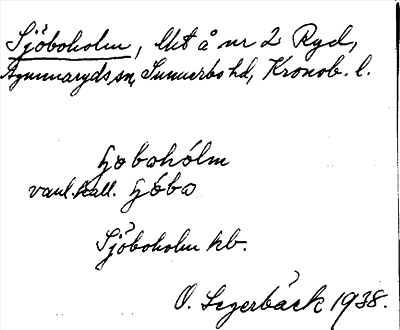 Sjöboholm, lht å nr 2 Ryd,
Agunnaryds sn, Sunnerbo hd, Kronob. l.
ɧøbohólm
vanl. kall. ɧóbo
Sjöboholm kb.
O. Segerbäck 1938.